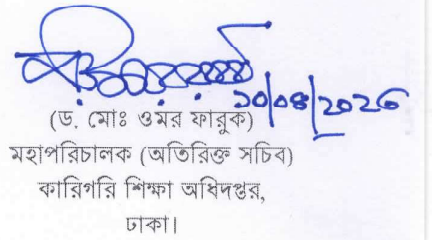 ১০/০৪/২০২৬
(ড. মোঃ ওমর ফারুক)
মহাপরিচালক (অতিরিক্ত সচিব)
কারিগরি শিক্ষা অধিদপ্তর,
ঢাকা।